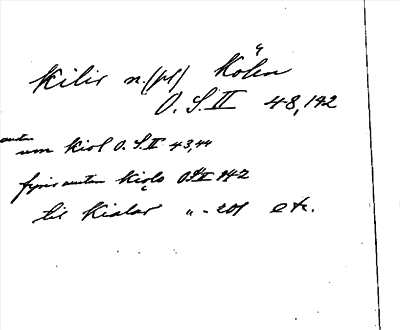 Kilir n. (pl) Köln
O. S. II 48,192
austan
um Kiol O. S. II 43,44
fyrir austan Kiolo O.S. II 142
til Kialar " - 201 etc.